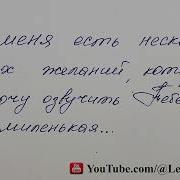 меня есть неск
х желаний, кот
очу озвучить Тебе
миленькая...
YouTube.com/@Le